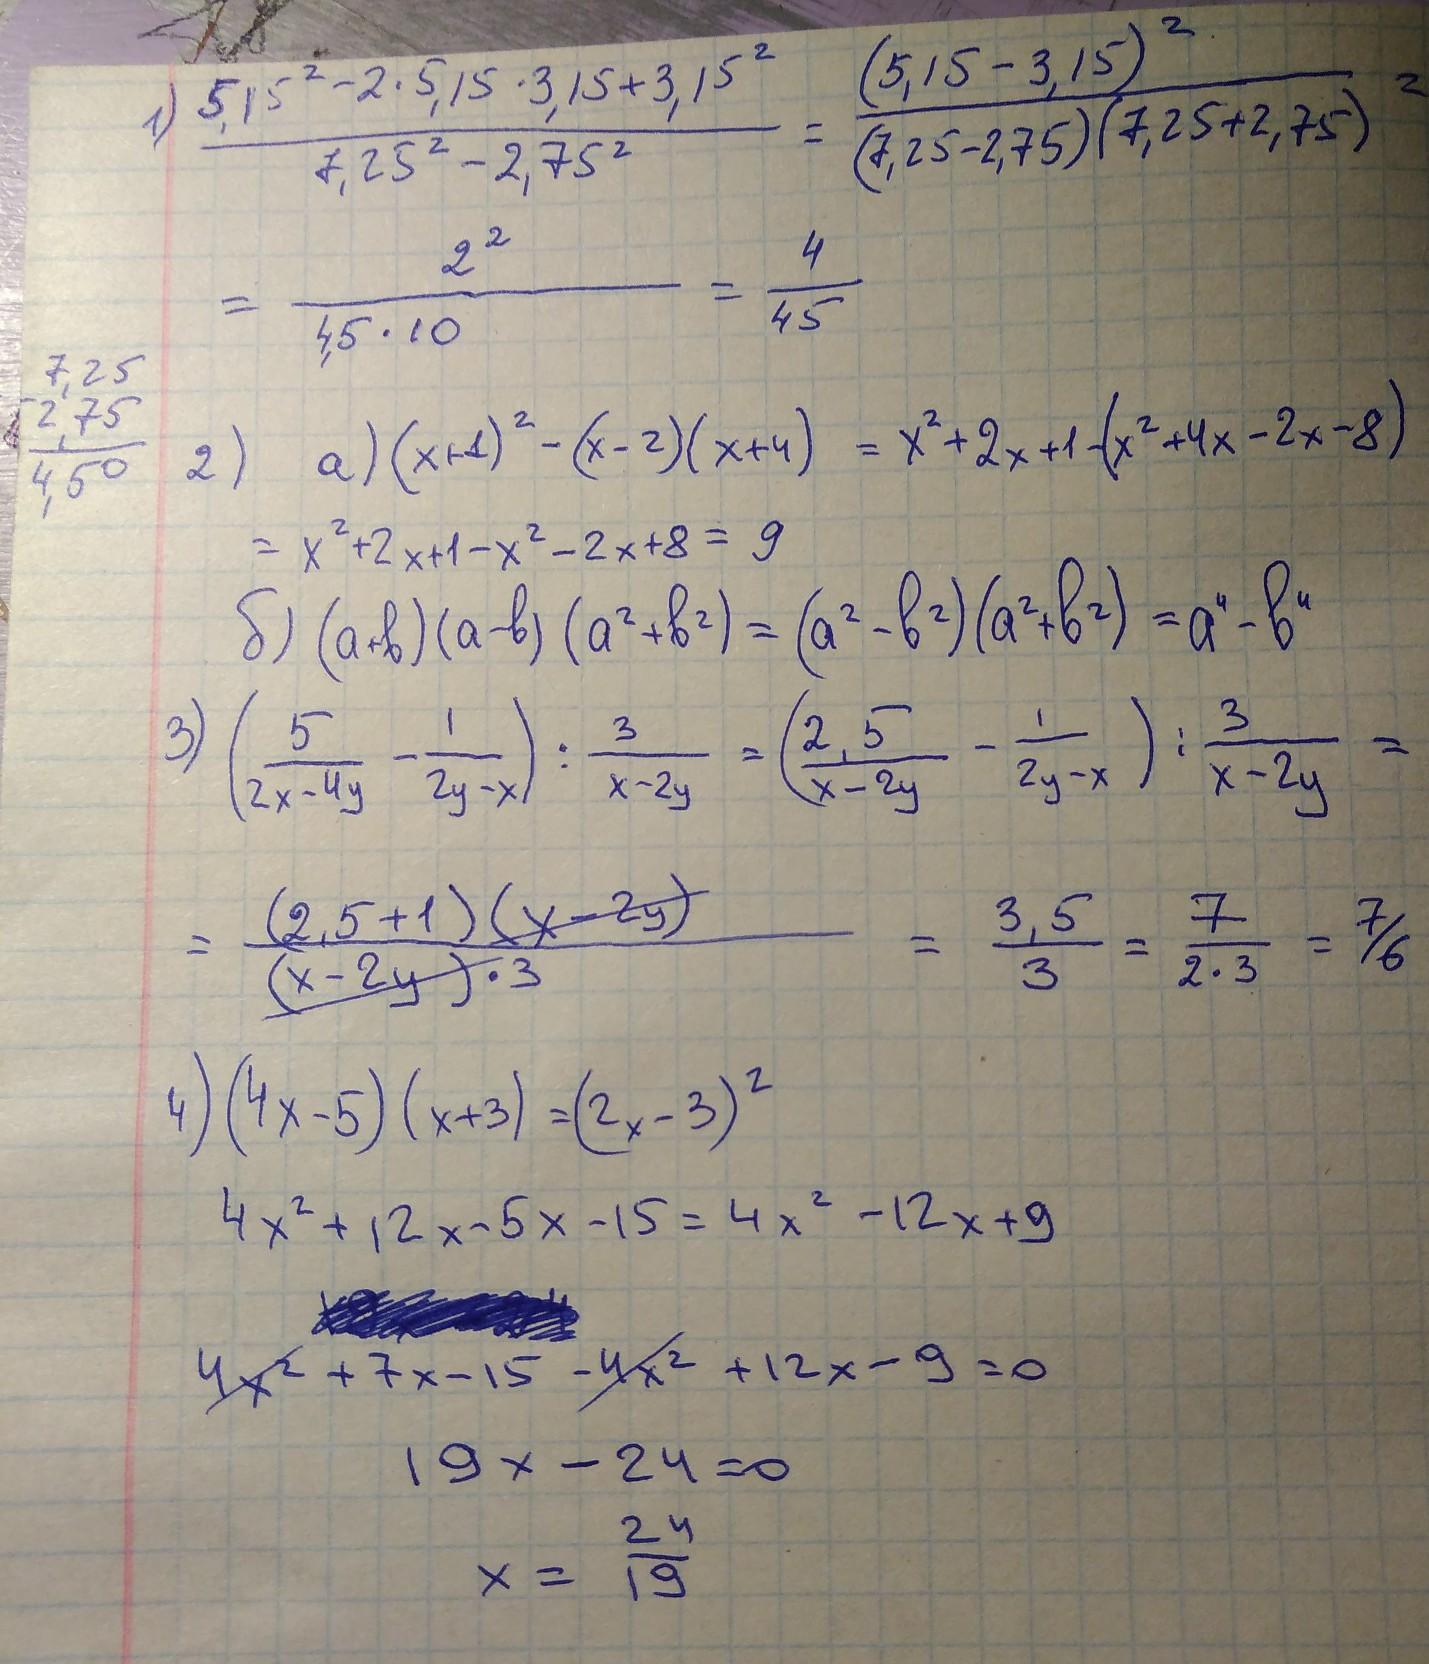 1) (5,15² - 2·5,15·3,15 + 3,15²)/(7,25² - 2,75²) = (5,15 - 3,15)²/((7,25 - 2,75)(7,25 + 2,75)) =
= 2²/(4,5·10) = 4/45
7,25
-2,75
4,50
2) а) (x+1)² - (x-2)(x+4) = x² + 2x + 1 - (x² + 4x - 2x - 8)
= x² + 2x + 1 - x² - 2x + 8 = 9
б) (a+b)(a-b)(a²+b²) = (a²-b²)(a²+b²) = a⁴-b⁴
3) (5/(2x-4y) - 1/(2y-x)) : 3/(x-2y) = (2,5/(x-2y) - 1/(2y-x)) : 3/(x-2y) =
= (2,5+1)(x-2y)/((x-2y)·3) = 3,5/3 = 7/(2·3) = 7/6
4) (4x-5)(x+3) = (2x-3)²
4x² + 12x - 5x - 15 = 4x² - 12x + 9
4x² + 7x - 15 - 4x² + 12x - 9 = 0
19x - 24 = 0
x = 24/19